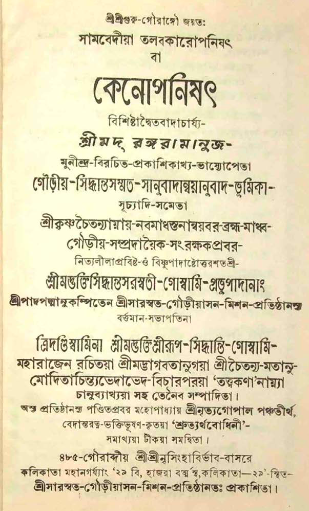 শ্রীশ্রীগুরু-গৌরাঙ্গৌ জয়তঃ
সামবেদীয়া তলবকারোপনিষৎ
বা
কেনোপনিষৎ
বিশিষ্টাদ্বৈতবাদাচার্য্য-
শ্রীমদ্ রঙ্গরামানুজ-
মুনীন্দ্র-বিরচিত-প্রকাশিকাখ্য-ভাষ্যোপেতা
গৌড়ীয়-সিদ্ধান্তসম্মত-সানুবাদান্বয়ানুবাদ-ভূমিকা-
সূচ্যাদি-সমেতা
শ্রীকৃষ্ণচৈতন্যাম্নায়-নবমাধস্তনান্বয়বর-ব্রহ্ম-মাধ্ব-
গৌড়ীয়-সম্প্রদায়ৈক-সংরক্ষকপ্রবর-
নিত্যলীলাপ্রবিষ্ট-ওঁ বিষ্ণুপাদাষ্টোত্তরশতশ্রী-
শ্রীমদ্ভক্তিসিদ্ধান্তসরস্বতী-গোস্বামি-প্রভুপাদানাং
শ্রীপাদপদ্মানুকম্পিতেন শ্রীসারস্বত-গৌড়ীয়াসন-মিশন-প্রতিষ্ঠানস্য
বর্ত্তমান-সভাপতিনা
ত্রিদণ্ডিস্বামিনা শ্রীমদ্ভক্তিশ্রীরূপ-সিদ্ধান্তি-গোস্বামি-
মহারাজেন রচিতয়া শ্রীমদ্ভাগবতানুগয়া শ্রীচৈতন্য-মতানু-
মোদিতাচিন্ত্যভেদাভেদ-বিচারপরয়া 'তত্ত্বকণা'নাম্ন্যা
চানুব্যাখ্যয়া সহ তেনৈব সম্পাদিতা।
অস্য প্রতিষ্ঠানস্য পণ্ডিতপ্রবর মহোপাধ্যায় শ্রীনৃত্যগোপাল পঞ্চতীর্থ,
বেদান্তরত্ন-ভক্তিভূষণ-কৃতয়া 'শ্রুত্যর্থবোধিনী'-
সমাখ্যয়া টীকয়া সমন্বিতা।
৪৮৫-গৌরাব্দীয় শ্রীশ্রীনৃসিংহাবির্ভাব-বাসরে
কলিকাতা মহানগর্য্যাং '২৯ বি, হাজরা বর্ত্মস্থ, কলিকাতা—২৯'-স্থিত-
শ্রীসারস্বত-গৌড়ীয়াসন-মিশন-প্রতিষ্ঠানতঃ প্রকাশিতা।